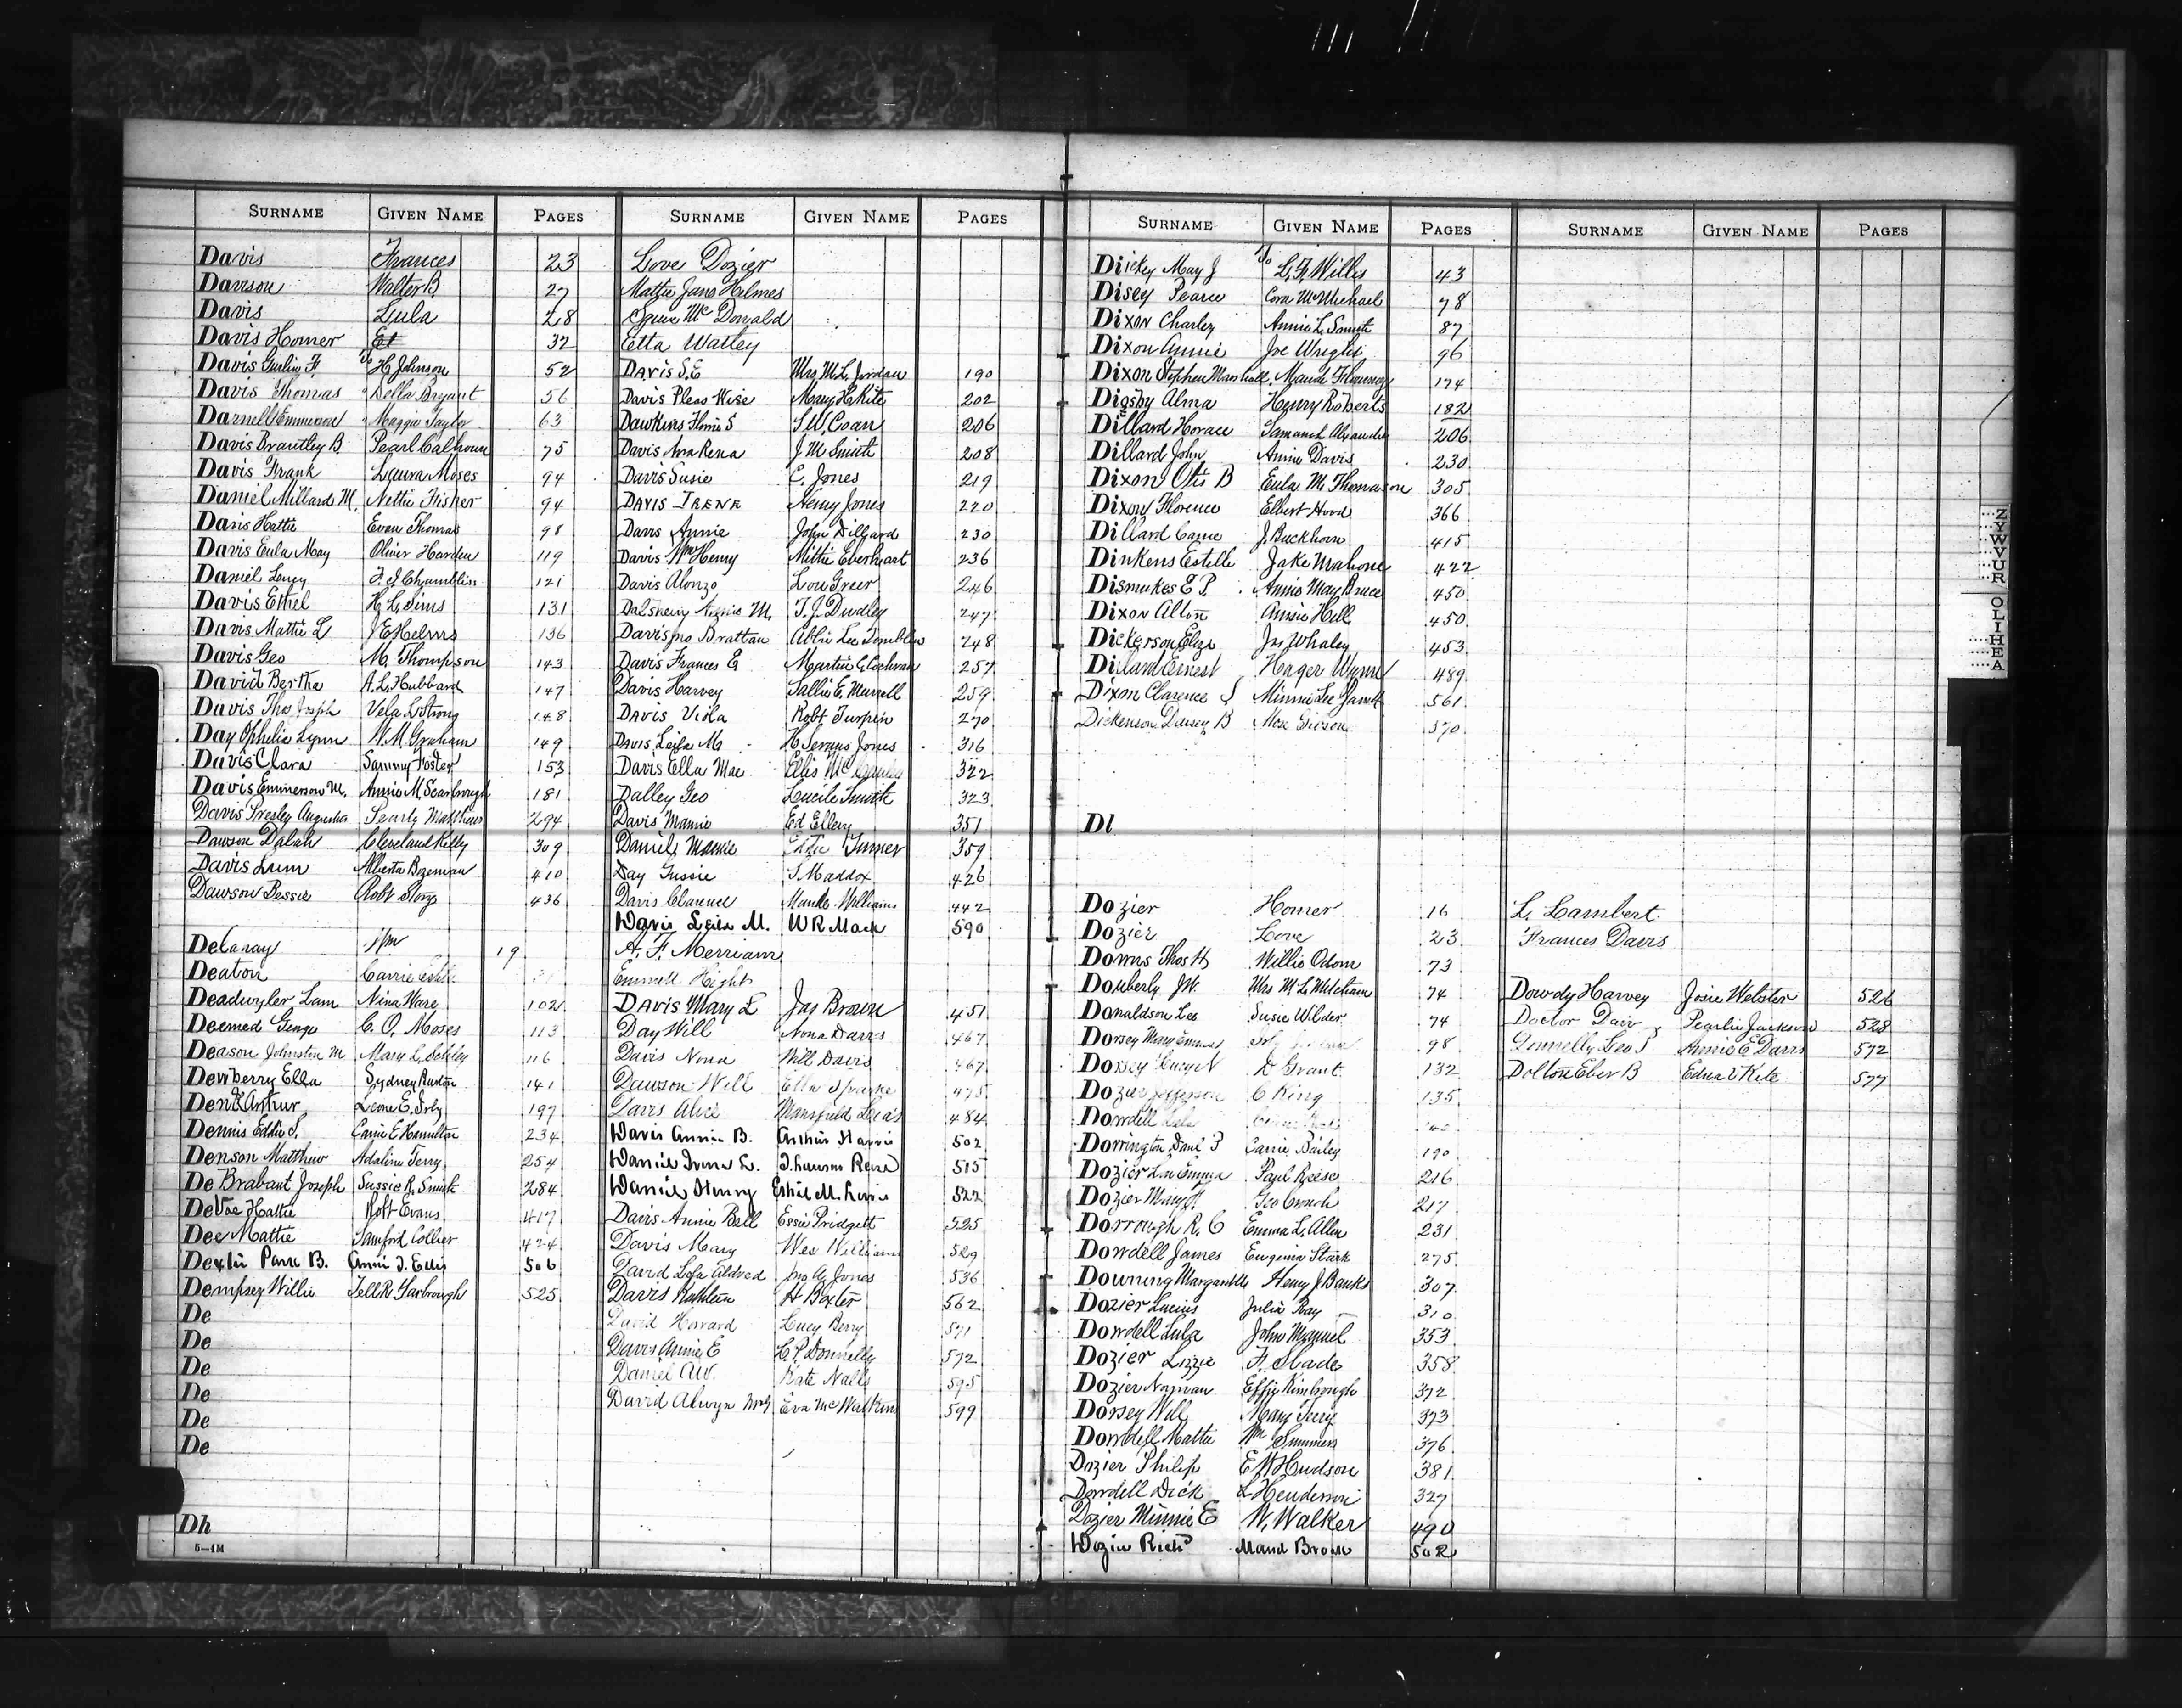 SURNAME GIVEN NAME PAGES SURNAME GIVEN NAME PAGES
Davis Frances 23 Love Dozier
Davison Walter B 27 Mattie Jane Helmes
Davis Lula 28 McDonald
Davis Homer Et 32 Etta Watley
Davis F. Vs H Johnson 52 Davis S. E Mrs M. L. Jordan 190
Davis Thomas " Della Bryant 56 Davis Pleas Wise Mary H Kite 202
Darnell Emmerson " Maggie Taylor 63 Dawkins S S. W. Coan 206
Davis Brantley B. Pearl Calhoun 75 Davis Ana Rena J M Smith 208
Davis Frank Laura Moses 94 Davis Susie C. Jones 219
Daniel Millard M. Nettie Fisher 94 DAVIS IRENE Henry Jones 220
Davis Hattie Evan Thomas 98 Davis Annie John Dillard 230
Davis Eula May Oliver Harden 119 Davis Wm Henry Mittie Eberhart 236
Daniel Lucy F. S. Chamblin 121 Davis Alonzo Lou Greer 246
Davis Ethel H. L. Sims 131 M. T. J. Dudley 247
Davis Mattie L J E Helms 136 Davis Jno Brattan Ablie Lee 248
Davis Geo M. Thompson 143 Davis Frances E Martin G Cochran 257
David Bertha A. L. Hubbard 147 Davis Harvey Sallie E. Murrell 259
Davis Thos Joseph Vela L Strong 148 Davis Viola Robt Turpin 270
Day Ophelia Lynn W. M. Graham 149 Davis Leila M H Jones 316
Davis Clara Sammy Foster 153 Davis Ella Mae Ellis 322
Davis Emmerson M. Annie M Scarbrough 181 Dalley Geo Lucile Smith 323
Davis Presley Augusta Pearly Matthews 294 Davis Mamie Ed Ellery 351
Dawson Dalah Cleveland Kelly 309 Daniel Mamie Turner 359
Davis Lum Alberta Bozeman 410 Day Gussie S Maddox 426
Dawson Bessie Robt Story 436 Davis Clarence Maude Williams 442
Davis Leila M. W R Mack 590
Delaney Wm 19 A. F. Merriam
Deaton Carrie Emmell Hight
Deadwyler Lam Nina Ware 102 DAVIS Mary L Jas Brown 451
Deemed George C. O. Moses 113 Day Will Nona Davis 467
Deason Johnston M Mary L. 116 Davis Nona Will Davis 467
Dewberry Ella Sydney Ruston 141 Dawson Will Ella 475
Dent Arthur Leone E. 197 Davis Alice Mansfield Lucas 484
Dennis Eddie S. Carrie E Hamilton 234 Davis Annie B. Arthur Harris 502
Denson Matthew Adaline Terry 254 Daniel L. Reese 515
De Brabant Joseph Sussie R. Smith 284 Daniel Henry M. 522
DeVoe Hattie Robt Evans 417 Davis Annie Bell Essie Pridgett 525
Dee Mattie Samford Collier 424 Davis Mary Wes Williams 529
Parr B. Annie J. Ellis 506 David Lola Aldred Jno A Jones 536
Dempsey Willie Zell R Yarbrough 525 Davis Kathleen H Baxter 562
De David Howard Lucy Berry 571
De Davis Annie E L. P. Donnelly 572
De Daniel A W. Kate Nalls 595
De David Alwyn Eva 599
De
De
Dh
5—1M
SURNAME GIVEN NAME PAGES SURNAME GIVEN NAME PAGES
Dickey May J Vs L. F. Willis 43
Disey Pearce Cora McMichael 78
Dixon Charley Annie L. Smith 87
Dixon Annie Joe Wright 96
Dixon Stephen Marshall Maude Flournoy 174
Digsby Alma Henry Roberts 182
Dillard Horace Alexander 206
Dillard John Annie Davis 230
Dixon Otis B Eula M. Thomason 305
Dixon Florence Elbert Hood 366
Dillard Carrie J. Buckhorn 415
Dinkens Estelle Jake Mahone 422
Dismukes E P. Annie May Bruce 450
Dixon Alton Annie Hill 450
Dickerson Eliza Jas Whaley 453
Dillard Ernest Hager Wynne 489
Dixon Clarence S Minnie Lee 561
Dickenson B 570
Dl
Dozier Homer 16 L. Lambert
Dozier Love 23 Frances Davis
Downs Thos H Willie Odom 73
Douberly J W. Mrs M. L. 74 Dowdy Harvey Josie Webster 526
Donaldson Lee Susie Wilder 74 Doctor Pearlie Jackson 528
Dorsey Mary 98 Donnelly Leo P Annie E Davis 572
Dorsey D Grant 132 Dolton Eber B Edna V Kite 577
Dozier Jefferson C King 135
Dowdell
Dorrington Danl P Carrie Bailey 190
Dozier Lou Emma Paul Reese 216
Dozier Mary Geo Crouch 217
Dorrough R. C Emma L. Allen 231
Dowdell James Eugenia Stark 275
Downing Henry J Banks 307
Dozier Lucius Julia Ray 310
Dowdell Lula John Manuel 353
Dozier Lizzie F. Slade 358
Dozier Norman Effie Kimbrough 372
Dorsey Will Mary Terry 373
Dowdell Mattie Wm Simmons 376
Dozier Philip E H Hudson 381
Dowdell Dick L Henderson 327
Dozier Minnie E W. Walker 490
Dozier Richd Maud Brown 502
ZYWVUR
OLIHEA